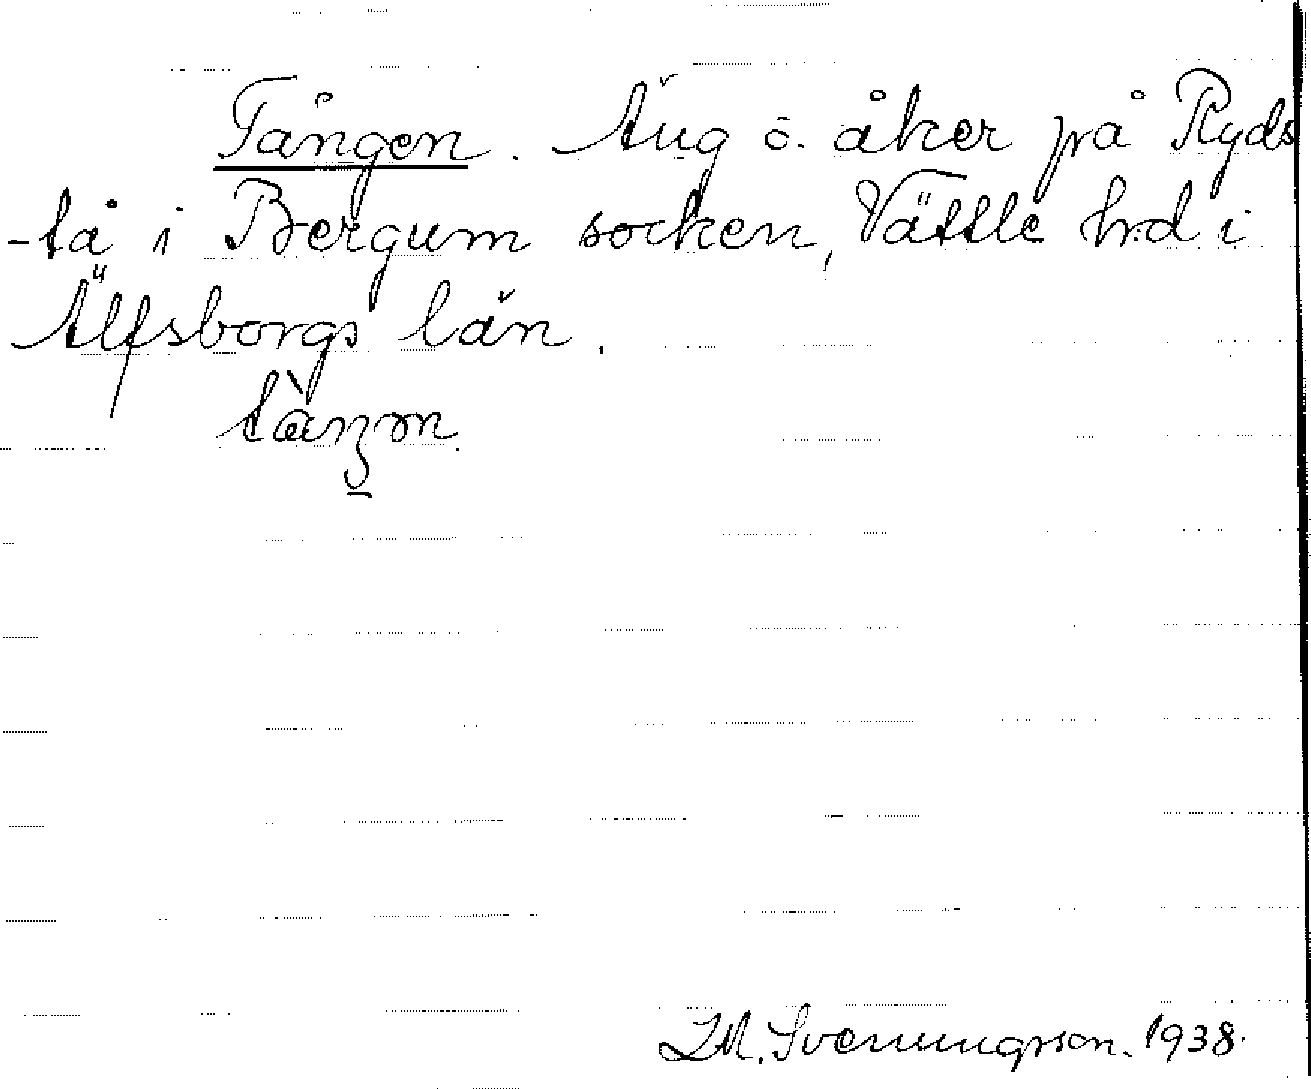 Tången. Äng o. åker på Ryds
-tå i Bergum socken, Vättle hrd i
Älfsborgs län.
Svenungsson. 1938.